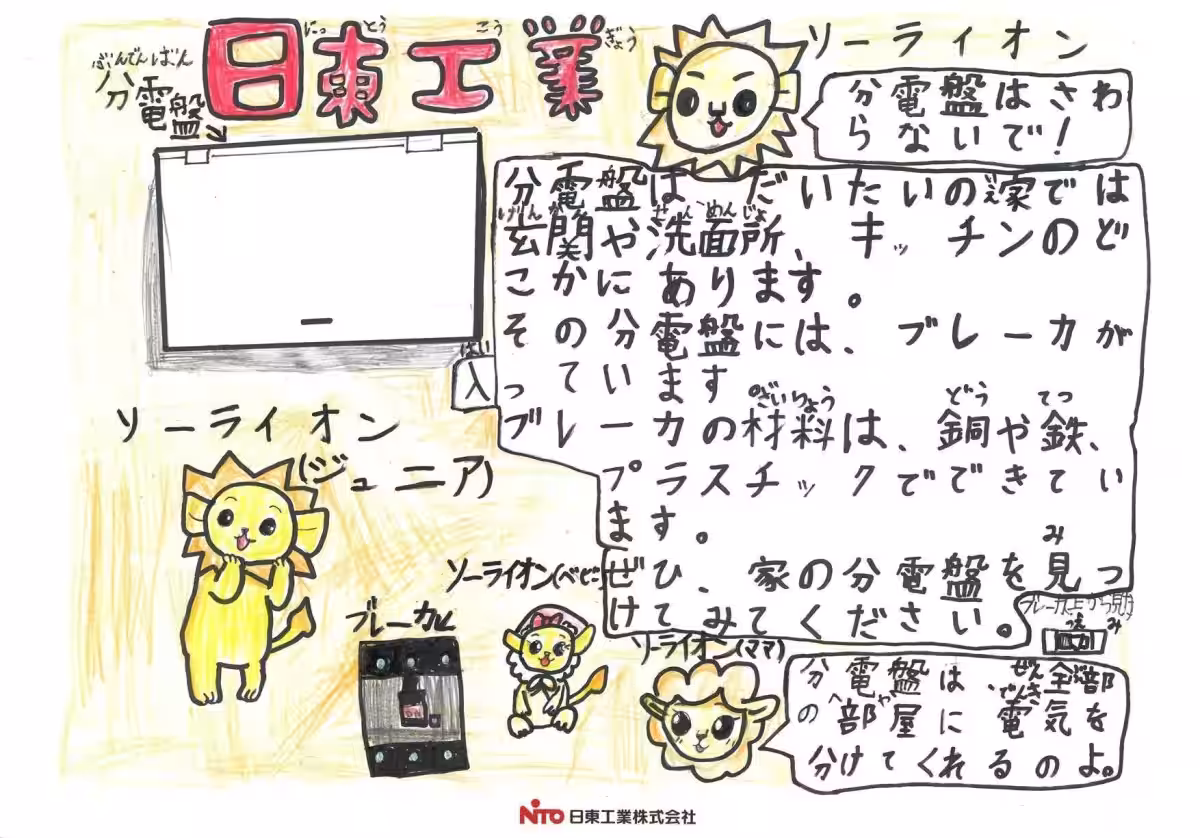 にっとうこうぎょう
日東工業
ぶんでんばん
分電盤
ソーライオン
分電盤はさわ
らないで!
分電盤は だいたいの家では
玄関や洗面所、キッチンのど
こかにあります。
その分電盤には、ブレーカが
入っています
ブレーカの材料は、銅や鉄、
プラスチックでできてい
ます。
ぜひ、家の分電盤を見つ
けてみてください。
ソーライオン
(ジュニア)
ソーライオン(ベビー)
ブレーカ
ソーライオン(ママ)
分電盤は全部
の部屋に電気を
分けてくれるのよ。
NITO 日東工業株式会社